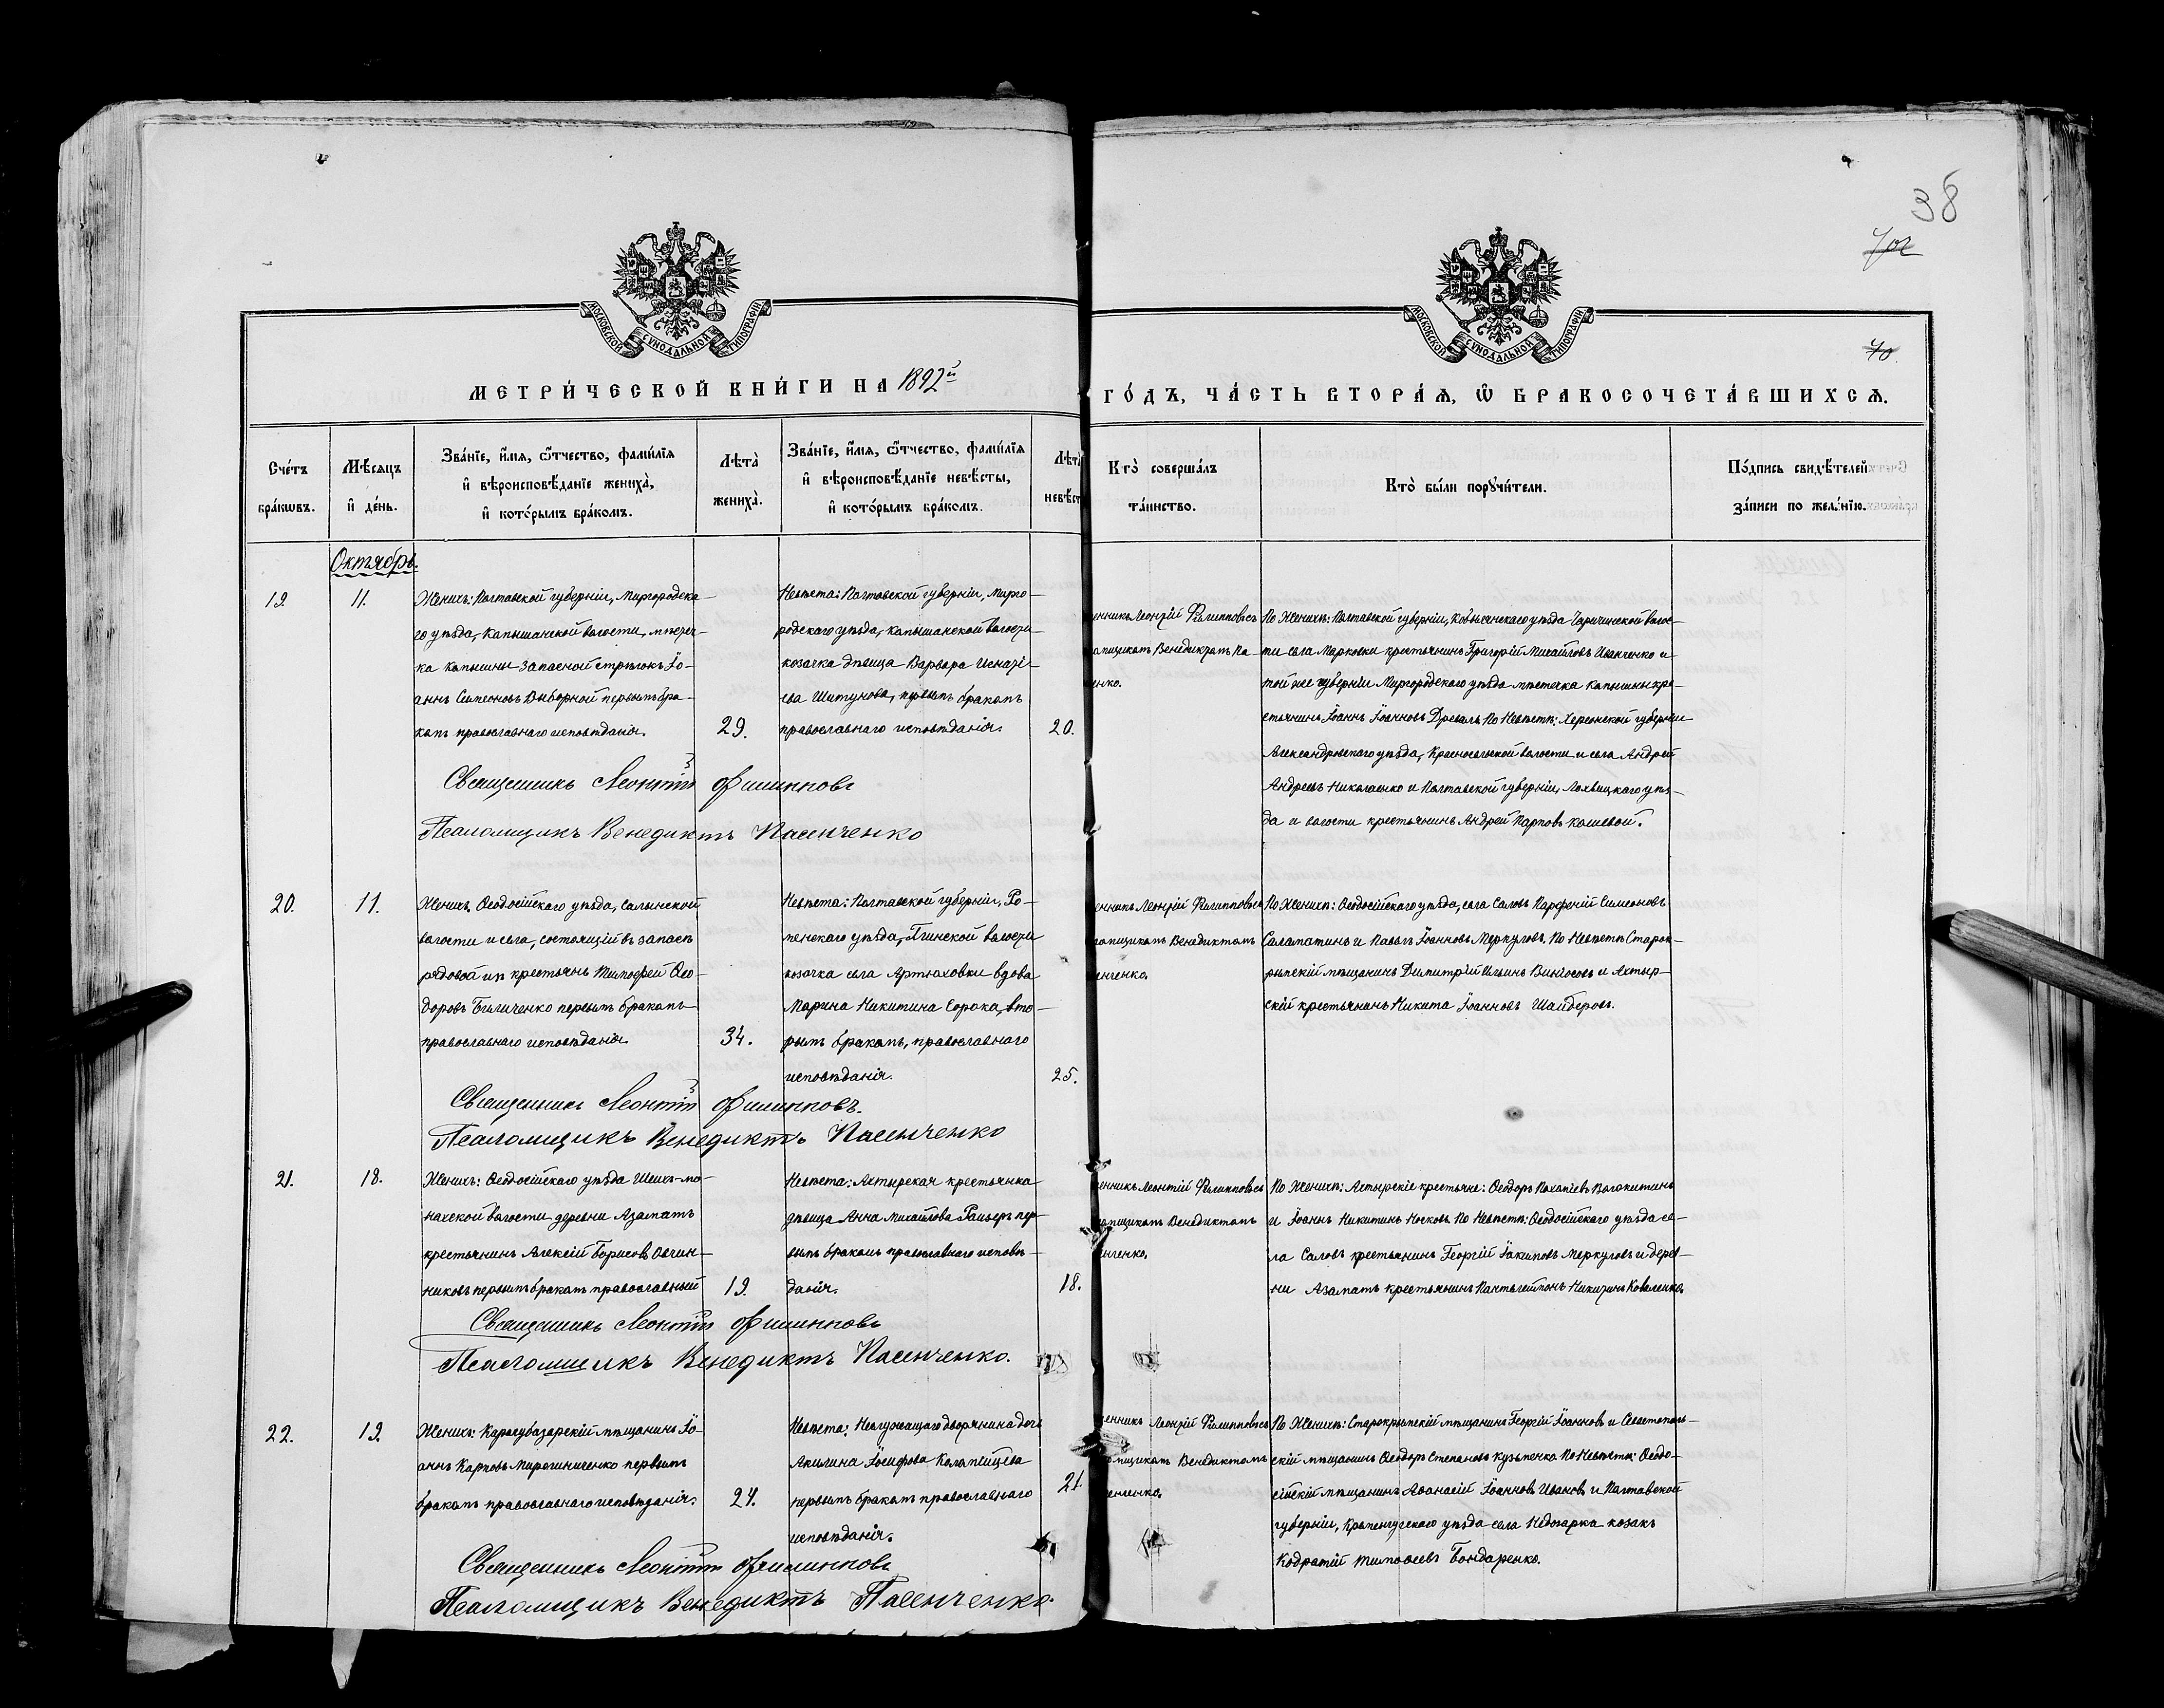 38
702
70.
МОСКОВСКОЙ СѴНОДАЛЬНОЙ ТИПОГРАФІИ
МОСКОВСКОЙ СѴНОДАЛЬНОЙ ТИПОГРАФІИ
МЕТРИ́ЧЕСКОЙ КНИ́ГИ НА 1892й ГО́ДЪ, ЧА́СТЬ ВТОРА́Ѧ, Ѽ БРАКОСОЧЕТА́ВШИХСѦ.
Сче́тъ
бра́кѡвъ.
Мѣ́сяцъ
и҆ де́нь.
Зва́нїе, и҆́мя, ѻ҆́тчество, фами́лїя
и҆ вѣроисповѣ́данїе жениха̀,
и҆ кото́рымъ бра́комъ.
Лѣта̀
жениха̀.
Зва́нїе, и҆́мя, ѻ҆́тчество, фами́лїя
и҆ вѣроисповѣ́данїе невѣ́сты,
и҆ кото́рымъ бра́комъ.
Лѣта̀
невѣ́ст
Кто̀ соверша́лъ
та́инство.
Кто̀ бы́ли порꙋчи́тели.
По́дпись свидѣ́телей
за́писи по жела́нїю.
Октябрь.
19.
11.
Женихъ: Полтавской губерніи, Миргородска-
го уѣзда, Капышанской волости, мѣстеч-
ка Капышны запасной стрѣлокъ Іо-
аннъ Симеоновъ Выборной первымъ бра-
комъ православнаго исповѣданія.
29.
Невѣста: Полтавской губерніи, Мирго-
родскаго уѣзда, Капышанской волости
козачка дѣвица Варвара Игнаті-
ева Шитунова, первымъ бракомъ
православнаго исповѣданія.
20.
енникъ Леонтій Филипповъ съ
ломщикомъ Венедиктомъ Па-
енко.
По Женихѣ: Полтавской губерніи, Кобылякскаго уѣзда Царичинской волос-
ти села Марковки крестьянинъ Григорій Михайловъ Иванченко и
той же губерніи Миргородскаго уѣзда мѣстечка Капышны кре-
стьянинъ Іоаннъ Іоанновъ Древаль По Невѣстѣ: Херсонской губерніи
Александровскаго уѣзда, Красносельской волости и села Андрей
Андреевъ Николаенко и Полтавской губерніи, Лохвицкаго уѣз-
да и волости крестьянинъ Андрей Карповъ Кошевой.
Священникъ Леонтій Филипповъ
Псаломщикъ Венедиктъ Пасенченко
20.
11.
Женихъ Ѳеодосійскаго уѣзда, Салынской
волости и села, состоящій въ запасѣ
рядовой изъ крестьянъ Тимоѳей Ѳео-
доровъ Бѣличенко первымъ бракомъ
православнаго исповѣданія
34.
Невѣста: Полтавской губерніи, Ро-
менскаго уѣзда, Глинской волости
козачка села Артюховки вдова
Марина Никитина Сорока, вто-
рымъ бракомъ, православнаго
исповѣданія.
25.
енникъ Леонтій Филипповъ съ
ломщикомъ Венедиктомъ
енченко.
По Женихѣ: Ѳеодосійскаго уѣзда, села Саловъ Парфеній Симеоновъ
Саламатинъ и Павелъ Іоанновъ Меркуловъ. По Невѣстѣ Старок-
рымскій мѣщанинъ Димитрій Ильинъ и Ахтыр-
скій крестьянинъ Никита Іоанновъ Шайдеровъ.
Священникъ Леонтій Филипповъ.
Псаломщикъ Венедиктъ Пасенченко
21.
18.
Женихъ: Ѳеодосійскаго уѣзда Шейхъ-мо-
нахской волости деревни Азаматъ
крестьянинъ Алексій Борисовъ Овчин-
никовъ первымъ бракомъ православный
19.
Невѣста: Ахтырская крестьянка
дѣвица Анна Михайлова пер-
вымъ бракомъ православнаго исповѣ-
данія.
18.
енникъ Леонтій Филипповъ съ
ломщикомъ Венедиктомъ
енченко.
По Женихѣ: Ахтырскіе крестьяне: Ѳеодоръ Волокитинъ
и Іоаннъ Никитинъ Носковъ По Невѣстѣ: Ѳеодосійскаго уѣзда се-
ла Саловъ крестьянинъ Георгій Іакимовъ Меркуловъ и дерев-
ни Азаматъ крестьянинъ Пантелеймонъ Никитинъ Коваленко.
Священникъ Леонтій Филипповъ
Псаломщикъ Венедиктъ Пасенченко.
22.
19.
Женихъ: Карасубазарскій мѣщанинъ Іо-
аннъ Карповъ Мирошниченко первымъ
бракомъ православнаго исповѣданія.
24.
Невѣста: Неслужащаго дворянина дочь
Акилина Іосифова Коломійцева
первымъ бракомъ православнаго
исповѣданія.
21.
енникъ Леонтій Филипповъ съ
ломщикомъ Венедиктомъ
енченко.
По Женихѣ: Старокрымскій мѣщанинъ Георгій Іоанновъ и Севастополь-
скій мѣщанинъ Ѳеодоръ Степановъ Кузьменко По Невѣстѣ: Ѳеодо-
сійскій мѣщанинъ Аѳанасій Іоанновъ Ивановъ и Полтавской
губерніи, Кременчугскаго уѣзда села Недогарка козакъ
Кодратій Тимоѳеевъ Бондаренко.
Священникъ Леонтій Филипповъ
Псаломщикъ Венедиктъ Пасенченко.